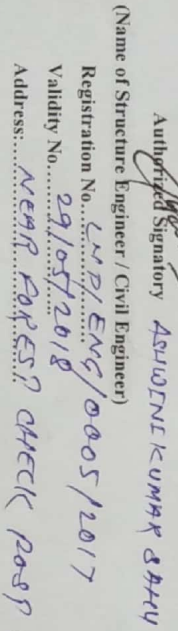 Authorized Signatory ASHWINI KUMAR SAHU
(Name of Structure Engineer / Civil Engineer)
Registration No.... LMP/ENG/0005/2017
Validity No....... 29/05/2018
Address:.... NEAR FOREST CHECK POST